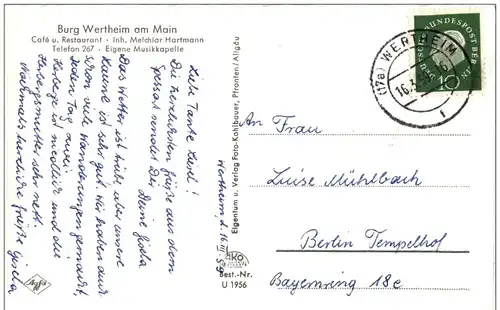 Burg Wertheim am Main
Café u. Restaurant · Inh. Melchior Hartmann
Telefon 267 · Eigene Musikkapelle
Liebe Tante Luise!
Die herzlichsten Grüße aus dem
Spessart sendet Dir
Deine Gisela
Das Wetter ist trübe aber unsere
Laune ist sehr gut. Wir haben auch
schon viele Wanderungen gemacht,
jeden Tag zwei.
Herberge ist niedlich und die
Herbergsmutter sehr nett.
Nochmals herzliche Grüße Gisela
Agfa
Eigentum u. Verlag Foto-Kohlbauer, Pfronten/Allgäu
Wertheim d. 16.III.59
Best.-Nr.
U 1956
(17a) WERTHEIM
16.
DEUTSCHE BUNDESPOST BERLIN
10
An Frau
Luise Mühlbach
Berlin Tempelhof
Bayernring 18c